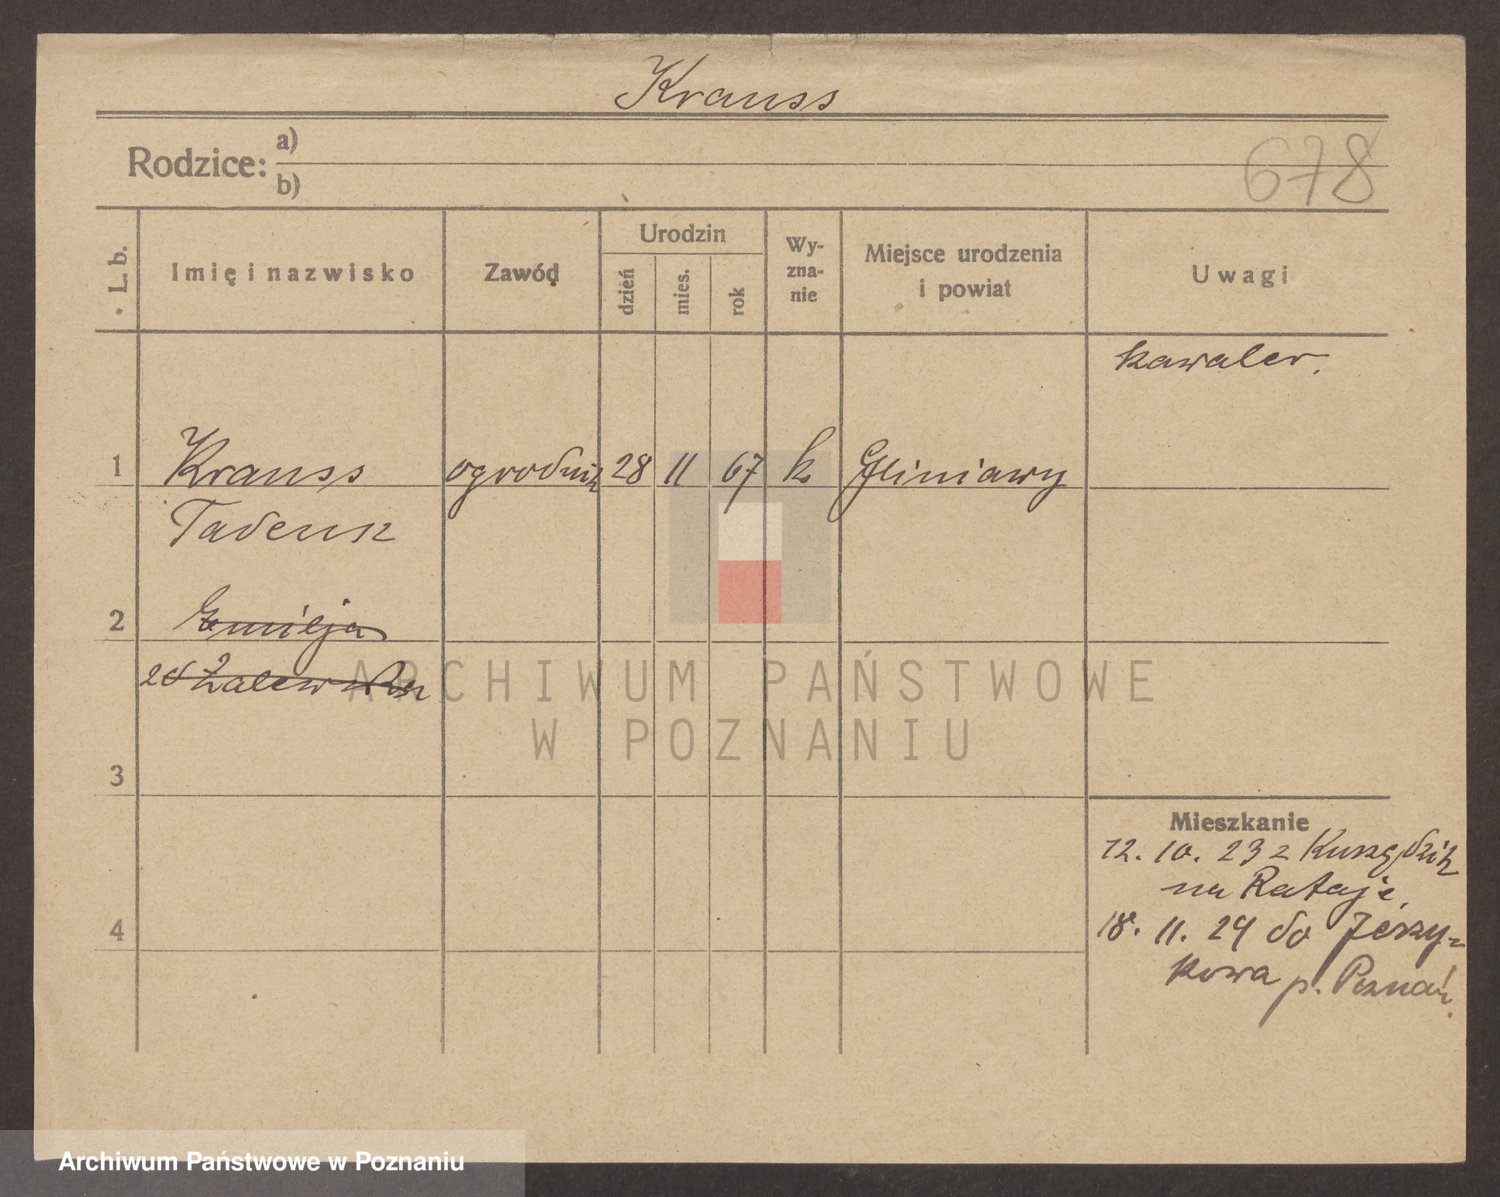 Krauss
Rodzice: a)
b)
678
L. b.
Imię i nazwisko
Zawód
Urodzin
dzień
mies.
rok
Wy-
zna-
nie
Miejsce urodzenia
i powiat
Uwagi
kawaler.
1 Krauss ogrodnik 28 11 67 k Gliniawy
Tadeusz
2 Emilja
zd Zalewska
3
Mieszkanie
12. 10. 23 z
na Rataje
4
18. 11. 24 do Jerzy-
kowa p. Poznań.
ARCHIWUM PAŃSTWOWE
W POZNANIU
Archiwum Państwowe w Poznaniu